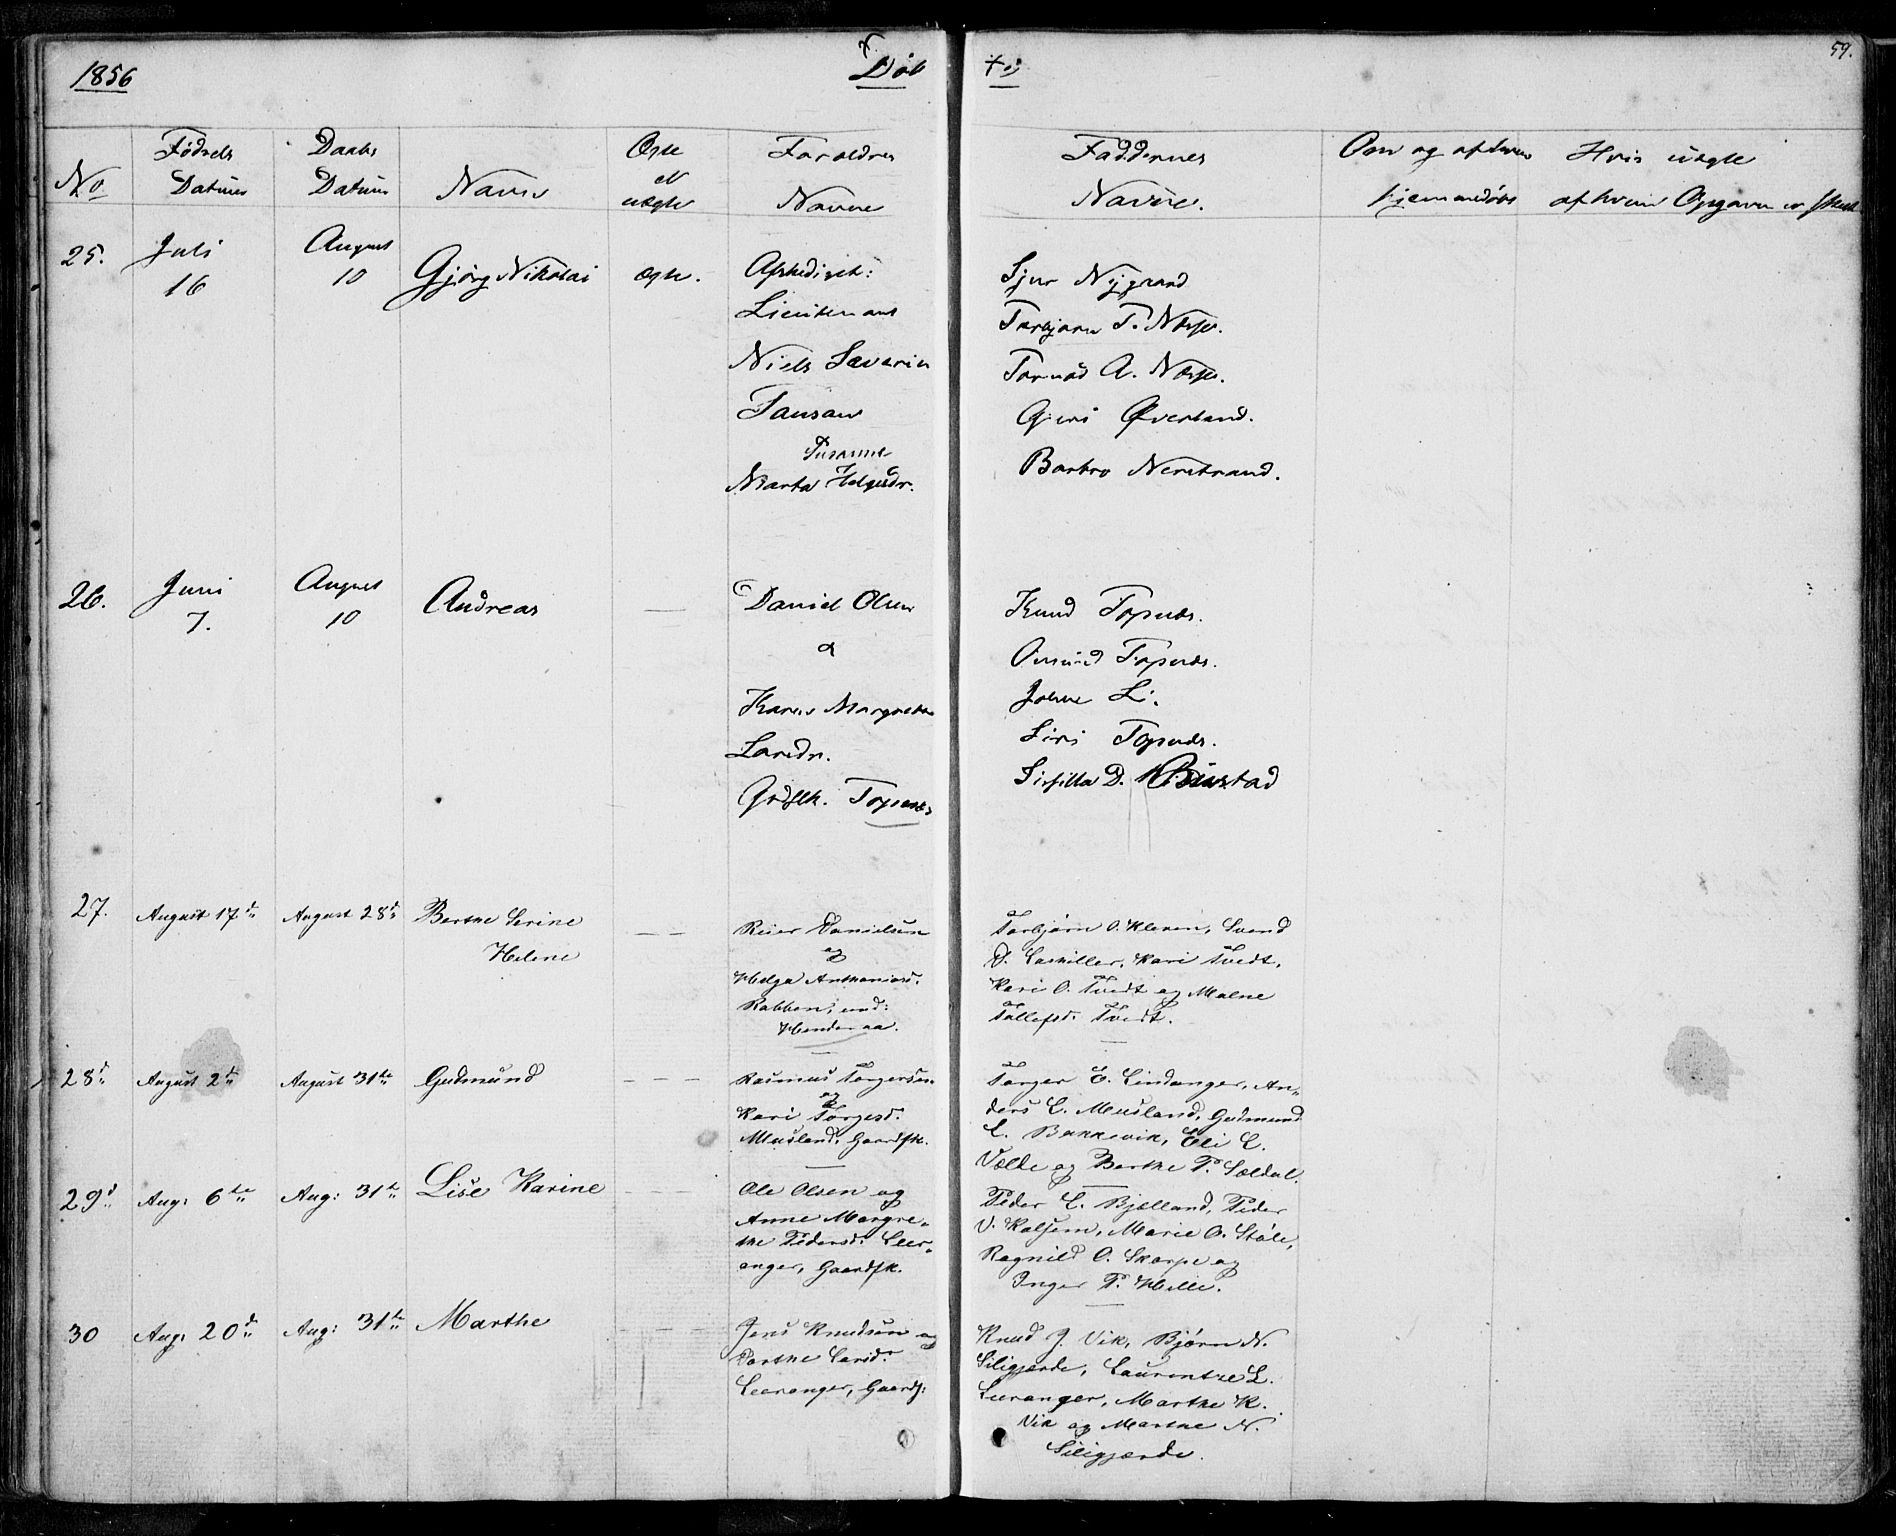 1856
Døb
te
59.
No
Fødsels Datum
Daabs Datum
Navn
Ægte el uægte
Forældres Navne
Faddernes Navne.
Om og af hvem hjemmedøbt
Hvis uægte af hvem Opgaven er skeet
25.
Juli 16
August 10
Gjørg Nikolai
ægte.
Afskediget:
Lieutenant
Niels Severin
Susanne
Marta Helgesdr.
Sjur Nygaard
Torbjørn T. Næsse.
A. Næsse.
Guri Øverland.
Barbro Nerstrand.
26.
Juni 7.
August 10
Andreas
Daniel Olsen
&
Karen Margrethe
Larsdr.
Grdflk. Topnæs
Knud Topnæs.
Topnæs.
Johne Li.
Siri Topnæs.
D. Buestad
27.
August 17de
August 28de
Berthe Serine
Helene
Reier Danielsen
og
Helga Anthoniasd.
Rabben, und:
Hinderaa.
Torbjørn O. Kleven, Svend
D. Kari Tvedt,
Kari O. Tvedt og Malene
Tollefsd. Tvedt.
28de
August 2de
August 31te
Gudmund
Rasmus Torgersen
og
Kari Torgesd.
Musland, Gaardfk.
Torger E. Lindanger, An-
ders L. Musland, Gudmund
L. Bakkevik, Eli L.
Valde og Berthe T. Sældal.
29de
Aug: 6te
Aug: 31te
Lise Karine
Ole Olsen og
Anne Margre-
the Pedersd. Leer-
anger, Gaardfk.
Peder L. Bjelland, Peder
V. Kalsem, Marie O. Støle,
Ragnild O. Skorpe og
Inger T. Hille.
30
Aug: 20de
Aug: 31te
Marthe
Jens Knudsen og
Larsd.
Leeranger, Gaardf:
Knud J. Vik, Bjørn N.
Siligjerde, Laurentze L.
Leeranger, Marthe K.
Vik og Marthe N.
Siligjærde.